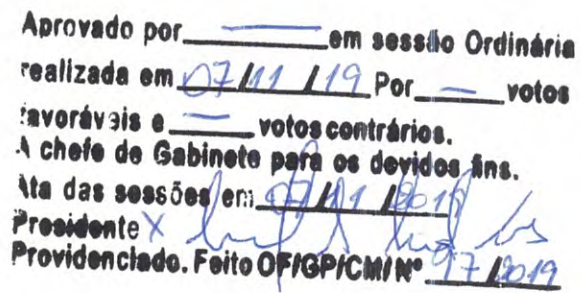 Aprovado por — em sessão Ordinária
realizada em 07/11/19 Por — votos
favoráveis e — votos contrários.
A chefe de Gabinete para os devidos fins.
Ata das sessões em 07/11/2019
Presidente X
Providenciado. Feito OF/GP/CMI Nº 97/2019